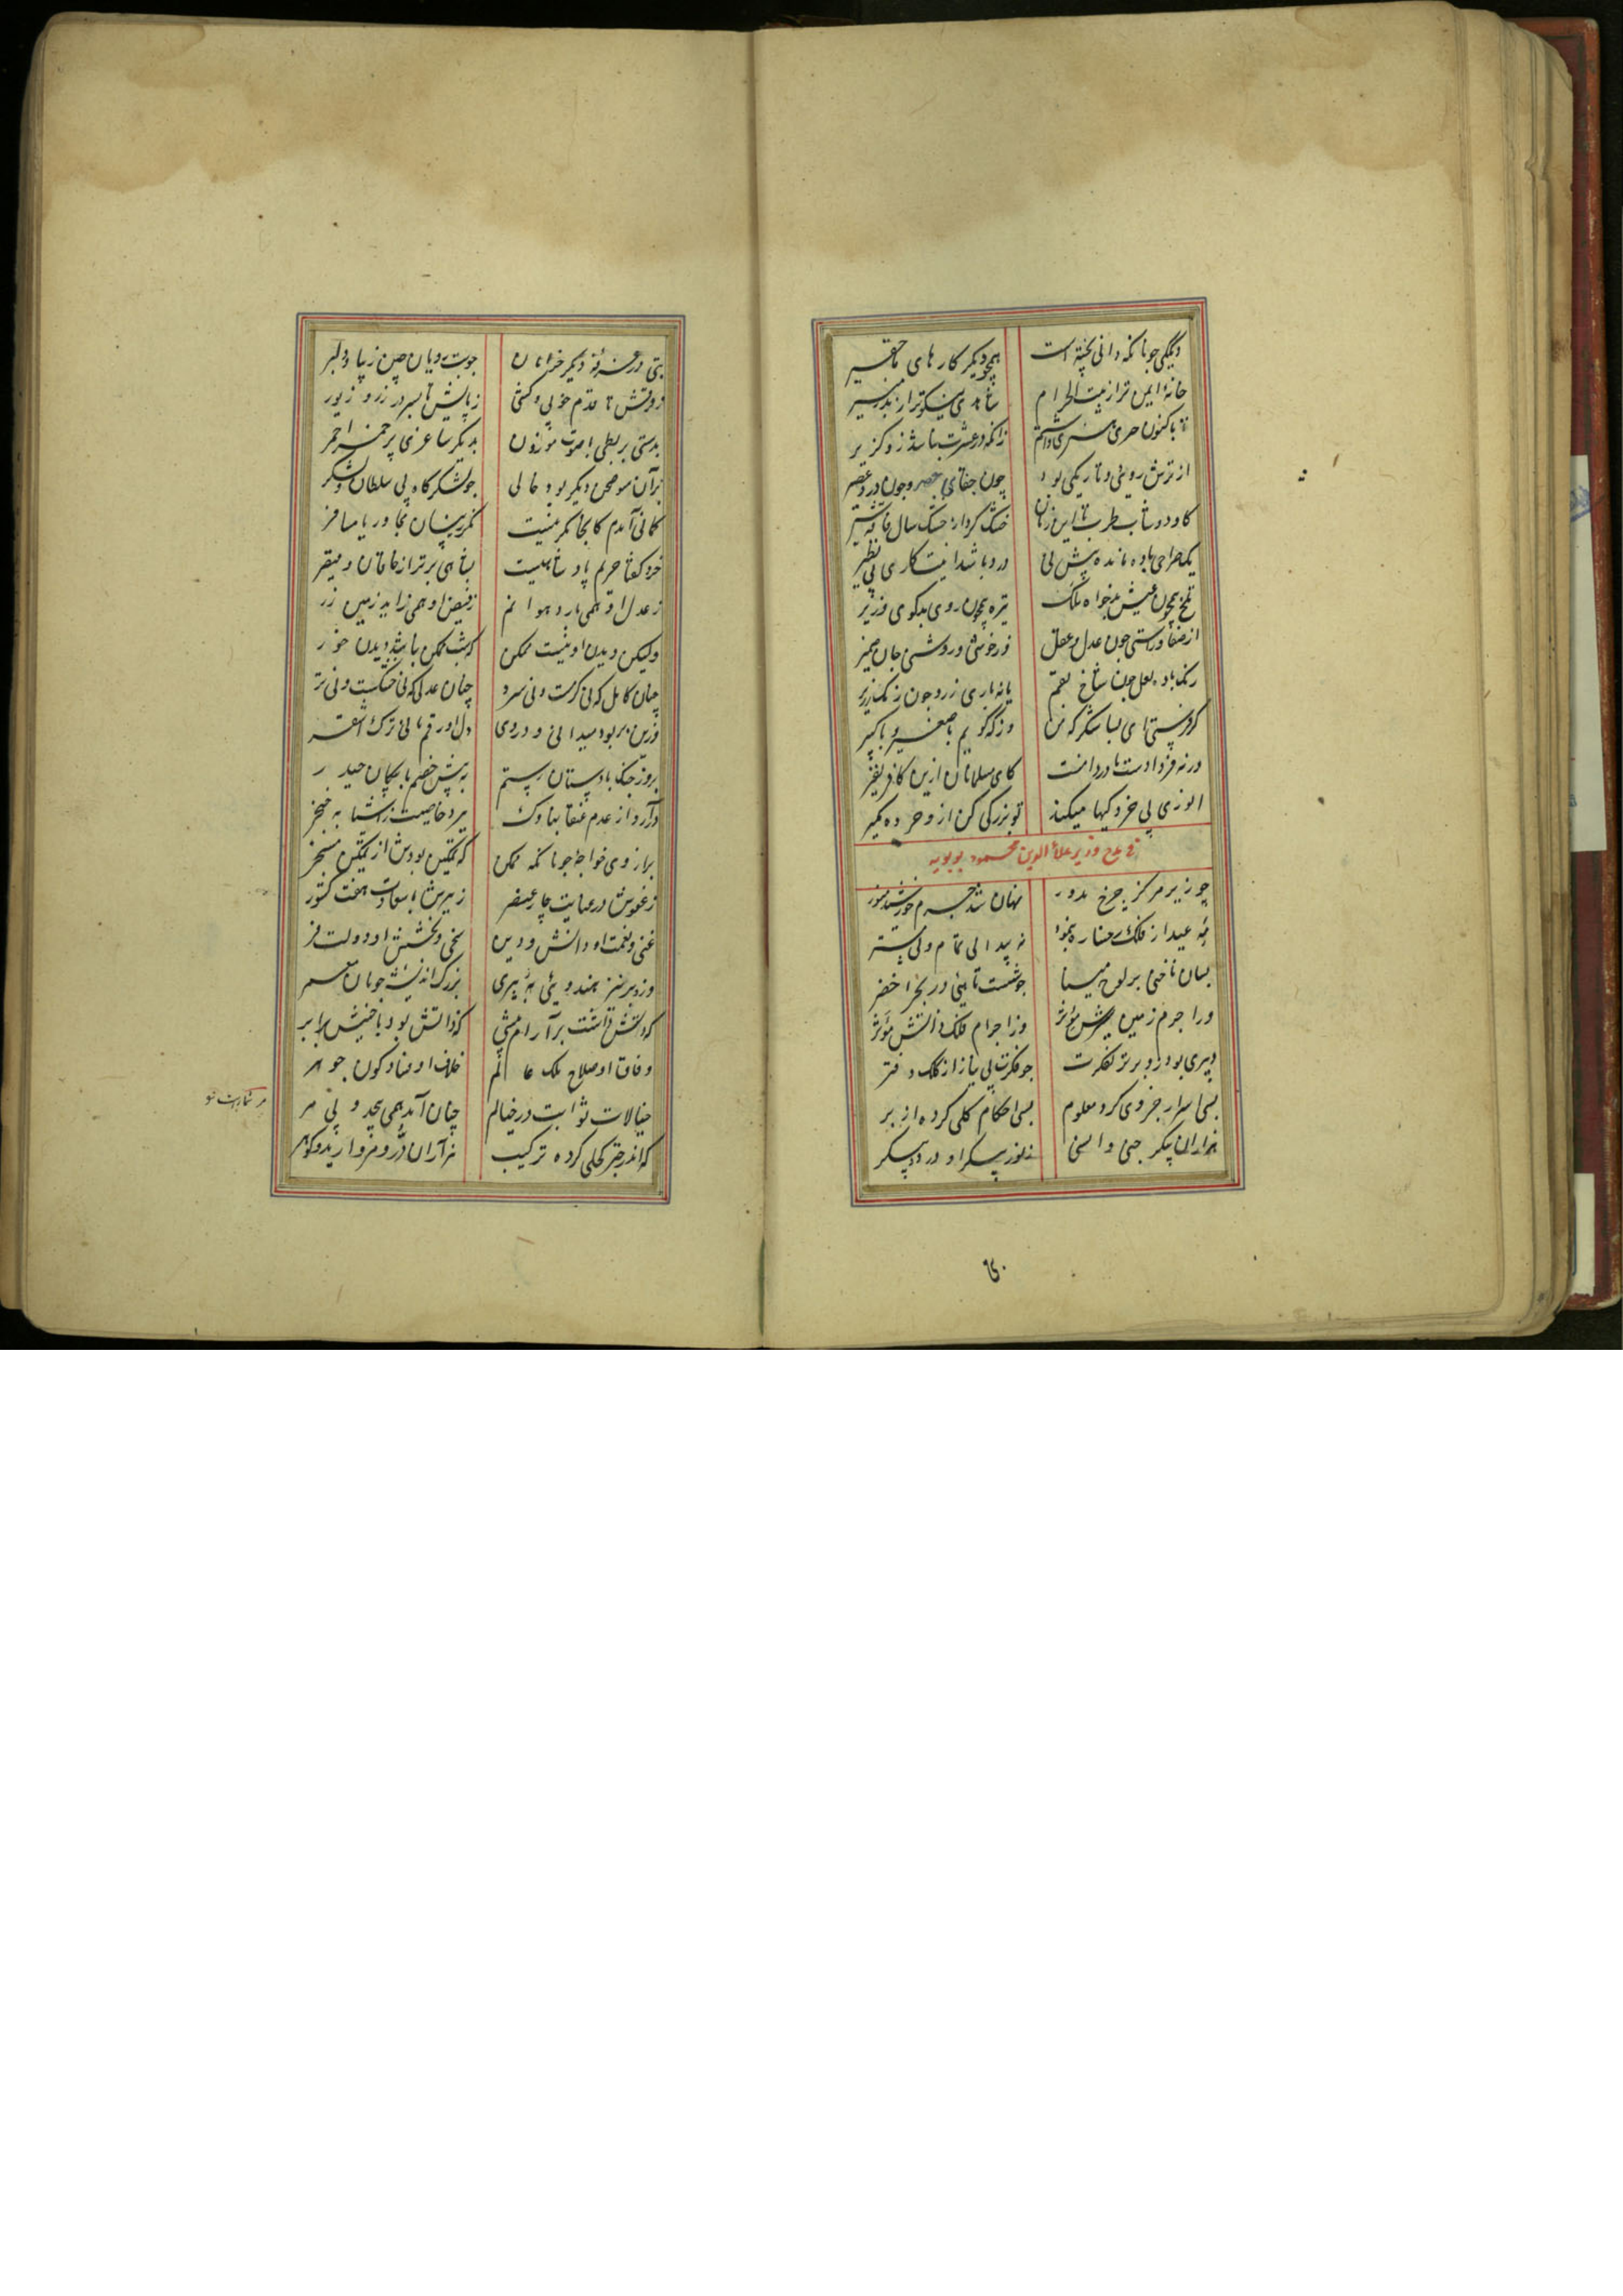 دیگکی چونانکه دانی پخته است همچو دیگر کارهای ما حقیر
خانهٔ ایمن تر از بیت الحرام شاهدی نیکوتر از بدر منیر
تا باکنون زانکه در عشرت نباشد زو گزیر
از ترش رویی و تاریکی بود چون جفای چون درد عصیر
خشک
یک صراحی باده مانده پیش نی ور دهد باشد اینت کاری بی نظیر
تلخ همچون عیش بدخواه ملک تیره همچون روی بدگوی وزیر
از صفا و راستی چون عدل و عقل وز خوشی و روشنی جان و ضمیر
رنگ باده لعل چون شاخ بقم یا نه باری زرد چون رنگ زریر
گر فرستی ای نباشکر که من ورنه گویم با صغیر و با کبیر
ورنه فردا دست ما و دامنت کای مسلمانان ازین کافر نفیر
انوری بی خردگیها میکند تو بزرگی کن از و خرده مگیر
در مدح وزیر علاء الدین محمود بوبویه
چو زیر مرکز چرخ مدور نهان شد جرم خورشید منور
مه عید از فلک رخساره بنمود نه پیدایی تمام و نی مستر
بسان ناخنی بر لوح مینا چو شست ماهیی در بحر اخضر
ورا جرم زمین پیشش مؤثر وز اجرام فلک ذاتش مؤثر
دبیری بود زو برتر بفکرت چو فکرت بی نیاز از کلک و دفتر
بسی اسرار جزوی کرده معلوم بسی احکام کلی کرده از بر
هزاران پیکر جنی و انسی ز نور پیکر او در دو پیکر
بتی در غرفهٔ دیگر خرامان چو بت رویان چین زیبا و دلبر
ز فرقش تا قدم خوبی و کشی ز پایش تا بسر در زر و زیور
بدستی بربطی با صوت موزون بدیگر ساغری پر خمر احمر
بر آن سو صحن دیگر بود خالی چو لشکرگاه بی سلطان و لشکر
گمانی آمدم کانجا مگر نیست مگر زینسان مجاور یا مسافر
خرد گفتا حریم پادشاهیست بشاهی برتر از خاقان و قیصر
ز عدل او همی بارد هوا نم ز فیض او همی زاید زمین زر
ولیکن دیدن او نیست ممکن که شب ممکن نباشد دیدن خور
چنان کامل که نی گرمست و نی سرد چنان عدلی که نی خشکست و نی تر
وزین بر بود میدانی و در وی دلاور قهرمانی ترک اشقر
بروز جنگ با دستان رستم به پیش خصم با پیکان حیدر
در آرد از عدم عنقا بناوک برد خاصیت از اشیا به خنجر
بر از وی خواجهٔ چونانکه ممکن که تمکین بودش از تمکین مسخر
ز عفوش در عنایت چار عنصر زیرش با سعادت هفت کشور
غنی و نعمت او دانش و دین سخی و بخشش او دولت و فر
وز و برتر بمیدو یکی پیری بزرگ اندیشه چونان معمر
که کینش ز آشتی بر آرام میشی که ذاتش بود با جنبش برابر
وفاق او صلاح ملک عالم خلاف او فساد کون جوهر
خیالات ثوابت در خیالم چنان آمد همی بیحد و بی مر
که اندر چتر کحلی کرده ترکیب هزاران در و مروارید و گوهر